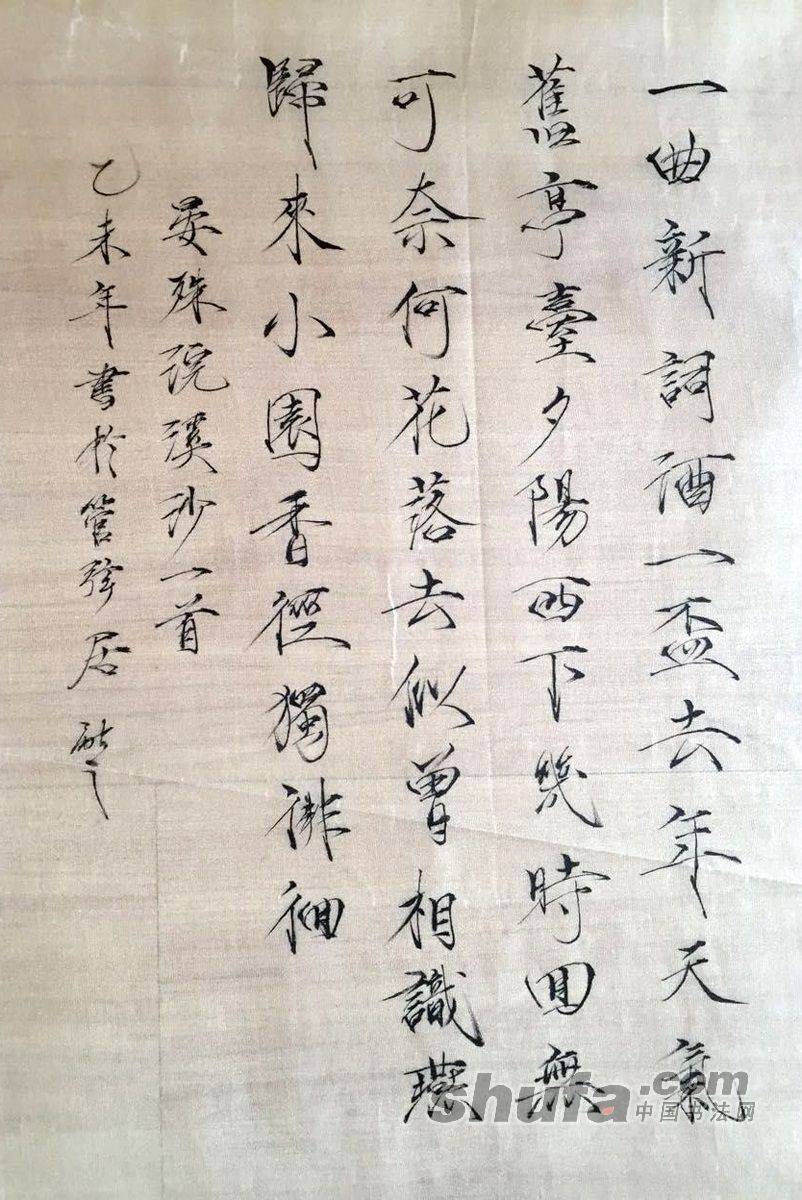 一曲新詞酒一盃去年天氣
舊亭臺夕陽西下幾時回無
可奈何花落去似曾相識燕
歸來小園香徑獨徘徊
晏殊浣溪沙一首
乙未年書於管弦居
shufa.com
中国书法网